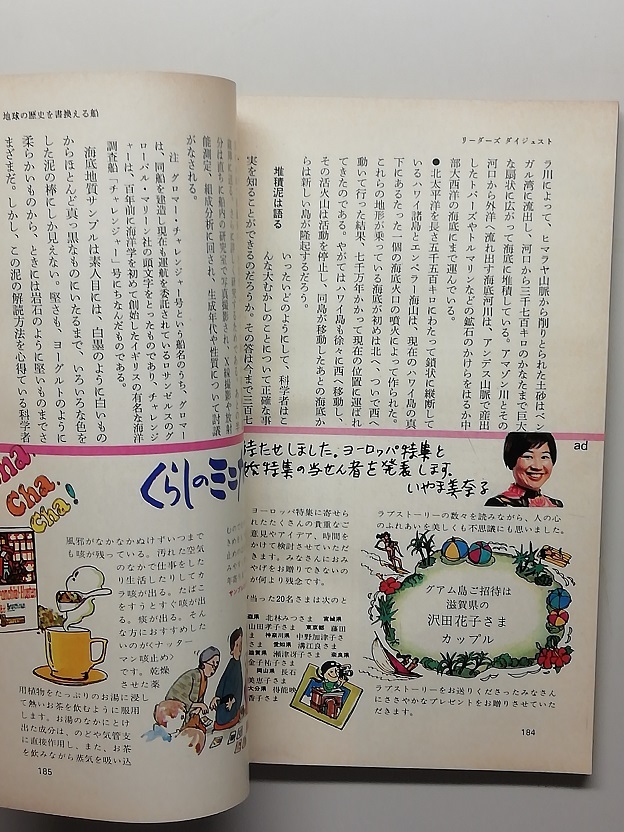 リーダーズ ダイジェスト
ラ川によって、ヒマラヤ山脈から削りとられた土砂はベン
ガル湾に流出し、河口から三千七百キロのかなたまで巨大
な扇状に広がって海底に堆積している。アマゾン川とその
河口から外洋へ流れ出す海底河川は、アンデス山脈で産出
したトパーズやトルマリンなどの鉱石のかけらをはるか中
部大西洋の海底にまで運んでいる。
●北太平洋を長さ五千五百キロにわたって鎖状に縦断して
いるハワイ諸島とエンペラー海山は、現在のハワイ島の真
下にあるたった一個の海底火口の噴火によって作られた。
これらの地形が乗っている海底が初めは北へ、ついで西へ
動いて行った結果、七千万年かかって現在の位置に運ばれ
てきたのである。やがてはハワイ島も徐々に西へ移動し、
その活火山は活動を停止し、同島が移動したあとの海底か
らは新しい島が隆起するだろう。
堆積泥は語る
いったいどのようにして、科学者はこ
んな大むかしのことについて正確な事
実を知ることができるのだろうか。その答は今まで三百七
ad
待たせしました。ヨーロッパ特集と
特集の当せん者を発表します。
いやま美奈子
ヨーロッパ特集に寄せら
れたたくさんの貴重なご
意見やアイデア、時間を
かけて検討させていただ
きます。みなさんにおみ
やげをお贈りできないの
が何より残念です。
当った20名さまは次のと
北林みつさま 宮城県
山田孝子さま 東京都 藤田
ま 神奈川県 中野加津子さ
さま 愛知県 溝江良さま
滋賀県 瀬津冴子さま 奈良県
金子祐子さま
岡山県 長石
美恵子さま
大分県 得能映
香子さま
ラブストーリーの数々を読みながら、人の心
のふれあいを美しくも不思議にも思いました。
グアム島ご招待は
滋賀県の
沢田花子さま
カップル
ラブストーリーをお送りくださったみなさん
にささやかなプレゼントをお贈りさせていた
だきます。
184
地球の歴史を書換える船
分は直ちに船内の研究室で写真撮影され、X線撮影や放射
能測定、組成分析に回され、生成年代や性質について討議
がなされる。
注 グロマー・チャレンジャー号という船名のうち、グロマー
は、同船を建造し現在も運航を委託されているロサンゼルスのグ
ローバル・マリーン社の頭文字をとったものであり、チャレンジ
ャーは、百年前に海洋学を初めて創始したイギリスの有名な海洋
調査船「チャレンジャー」号にちなんだものである。
海底地質サンプルは素人目には、白墨のように白いもの
からほとんど真っ黒なものにいたるまで、いろいろな色を
した泥の棒にしか見えない。堅さも、ヨーグルトのように
柔らかいものから、ときには岩石のように堅いものまでさ
まざまだ。しかし、この泥の解読方法を心得ている科学者
Cha.
Cha.
Cha!
くらしのミニ
風邪がなかなかぬけずいつまで
も咳が残っている。汚れた空気
のなかで仕事をした
り生活したりしてカ
ラ咳が出る。たばこ
をすうとすぐ咳が出
る。痰が出る。そん
な方におすすめした
いのが〈ナッター
マン咳止め〉
です。乾燥
させた薬
用植物をたっぷりのお湯に浸し
て熱いお茶を飲むように服用
します。お湯のなかにとけ
出た成分は、のどや気管支
に直接作用し、また、お茶
を飲みながら蒸気を吸い込
185